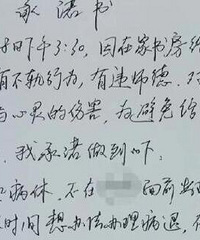 承诺书
8日下午3:30,因在家书房给
有不轨行为,有违师德.对
心灵的伤害,为避免给
.我承诺做到以下:
病休.不在 面前出
时间想办法办理病退,在